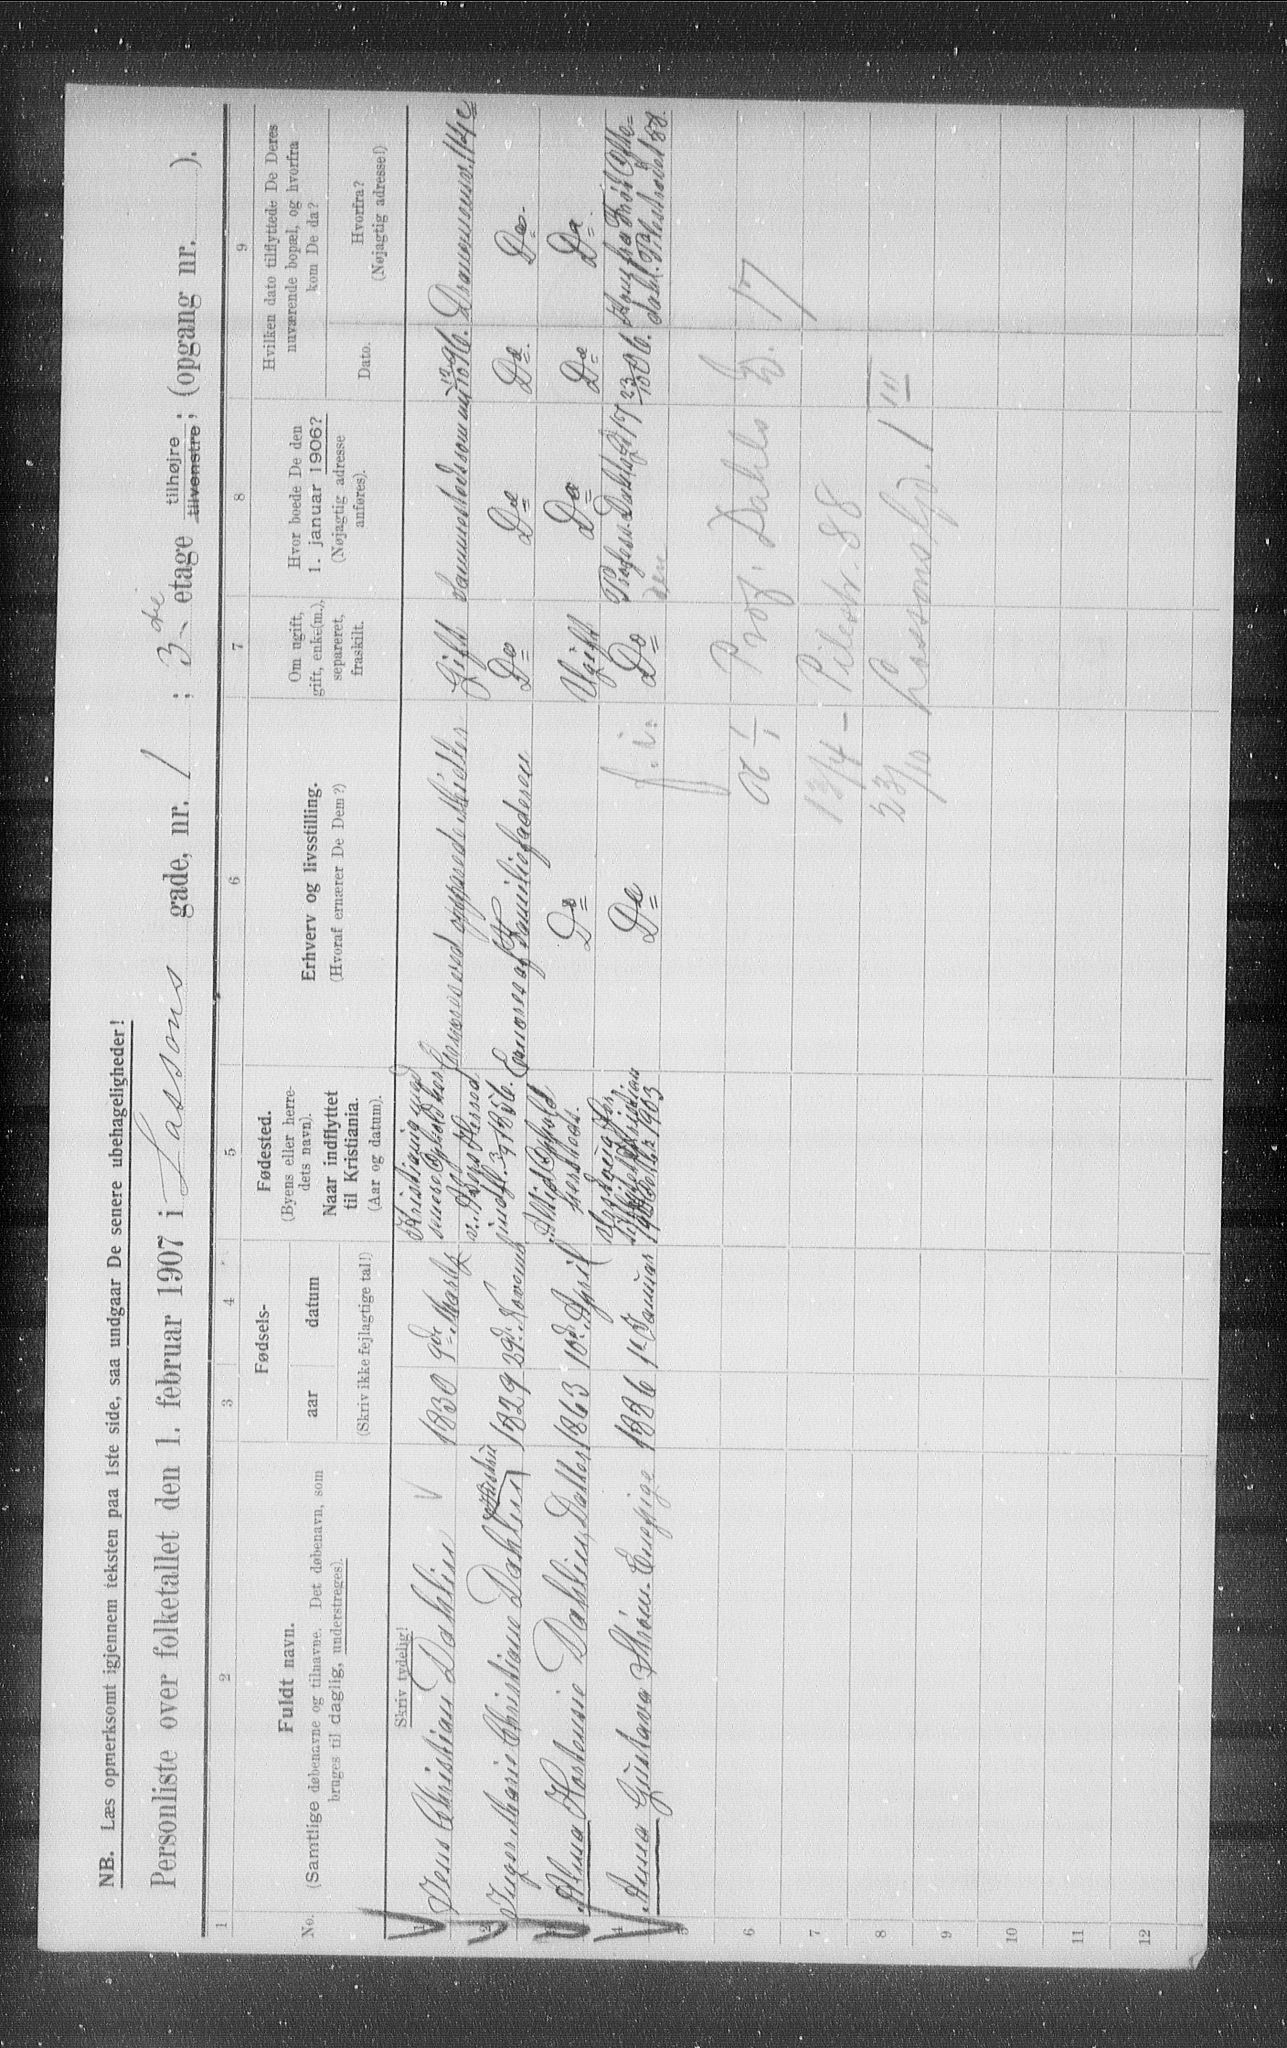 NB. Læs opmerksomt igjennem teksten paa 1ste side, saa undgaar De senere ubehageligheder!
Personliste over folketallet den 1. februar 1907 i Lassons gade, nr. 1 ; 3die etage tilhøjre tilvenstre ; (opgang nr. ).
1 2 3 4 5 6 7 8 9
No.
Fuldt navn.
(Samtlige døbenavne og tilnavne. Det døbenavn, som
bruges til daglig, understreges).
Fødsels-
aar datum
(Skriv ikke fejlagtige tal!)
Fødested.
(Byens eller herre-
dets navn).
Naar indflyttet
til Kristiania.
(Aar og datum).
Erhverv og livsstilling.
(Hvoraf ernærer De Dem?)
Om ugift,
gift, enke(m.),
separeret,
fraskilt.
Hvor boede De den
1. januar 1906?
(Nøjagtig adresse
anføres).
Hvilken dato tilflyttede De Deres
nuværende bopæl, og hvorfra
kom De da?
Dato.
Hvorfra?
(Nøjagtig adresse!)
Skriv tydelig!
1 Jens Christian Dahlin 1830 9de Marts Kristiania Gift Samme sted som nu Drammensv. 114c
2 Inger Marie Christiane Dahlin Hustru 1829 29d. Novemb Ernæres af Familiefaderen Do Do Do. Do.
3 Alma Hortensie Dahlin, Datter 1863 10d April Do Ugift Do Do Do.
4 Anna Gustava Strøm. Enepige 1886 1ste Januar 1903 Do Do Profess. Dahlsgd 17 23/10 06.
f. i.
06 1/1 Prof. Dahls G. 17
13/4 - Pilestr. 88
23/10 Lassons Gd. 1 III
5
6
7
8
9
10
11
12